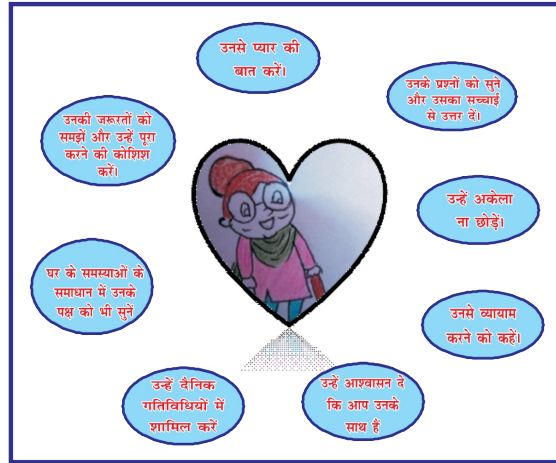 उनसे प्यार की
बात करें।
उनके प्रश्नों को सुने
और उसका सच्चाई
से उत्तर दें।
उन्हें अकेला
ना छोड़ें।
उनसे व्यायाम
करने को कहें।
उन्हें आश्वासन दे
कि आप उनके
साथ हैं
उन्हें दैनिक
गतिविधियों में
शामिल करें
घर के समस्याओं के
समाधान में उनके
पक्ष को भी सुनें
उनकी जरूरतों को
समझें और उन्हें पूरा
करने की कोशिश
करें।